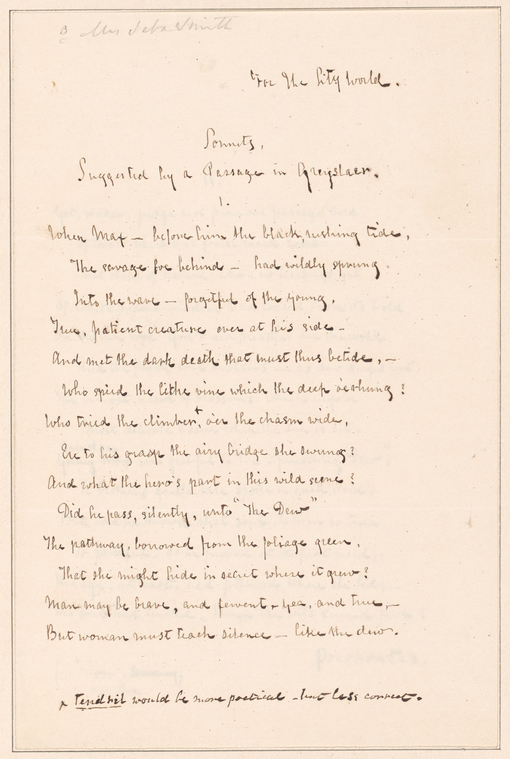 Mrs Seba Smith
For the City World.
Sonnets,
Suggested by a Passage in Greyslaer.
1.
When Max — before him the black, rushing tide,
The savage foe behind — had wildly sprung
Into the wave — forgetful of the young,
True, patient creature over at his side —
And met the dark death that must thus betide, —
Who spied the lithe vine which the deep o'erhung?
Who tried the climber,+ o'er the chasm wide,
Ere to his grasp the airy bridge she swung?
And what the hero's part in this wild scene?
Did he pass, silently, unto "The Dew"
The pathway, borrowed from the foliage green,
That she might hide in secret where it grew?
Man may be brave, and fervent, yea, and true, —
But woman must teach silence — like the dew.
+ Tendril would be more poetical — but less correct.